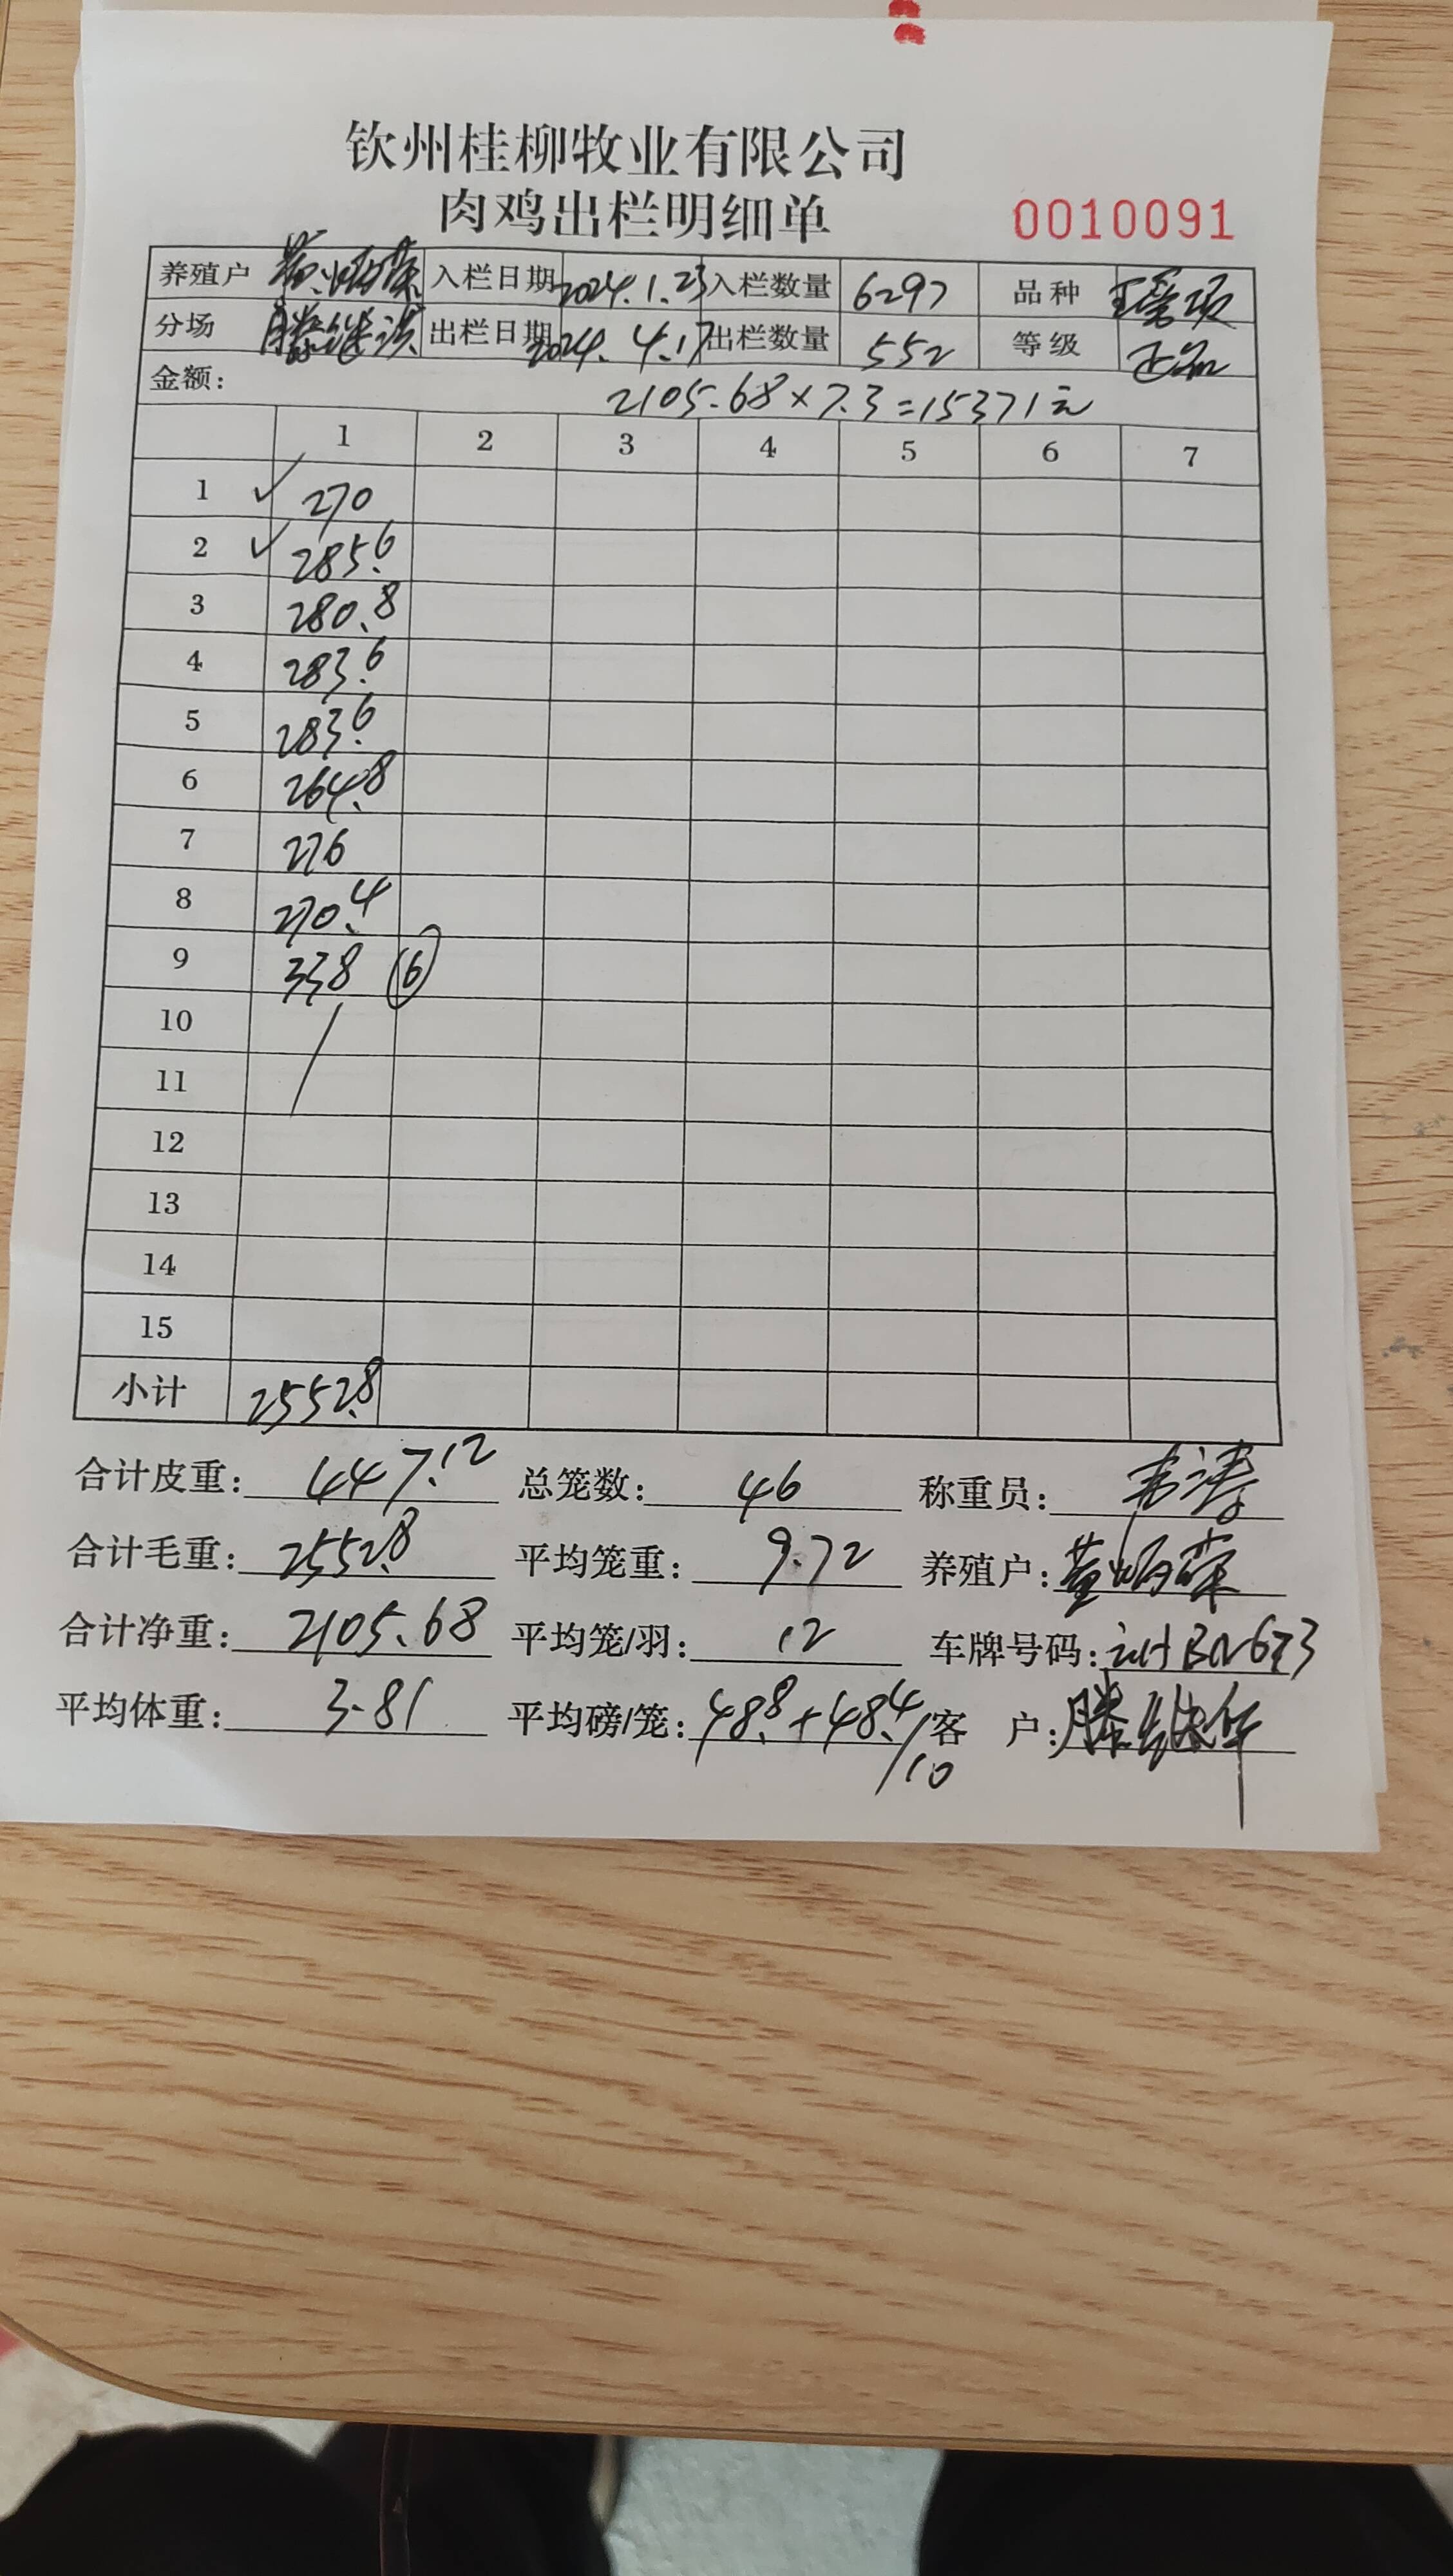 钦州桂柳牧业有限公司
肉鸡出栏明细单 0010091
养殖户 入栏日期 2024.1.23 入栏数量 6297 品种
分场 出栏日期 2024.4.17 出栏数量 552 等级 正品
金额: 2105.68×7.3=15371元
1 2 3 4 5 6 7
1 ✓ 270
2 ✓ 285.6
3 280.8
4 283.6
5 283.6
6 264.8
7 276
8 270.4
9 338 ⑥
10
11
12
13
14
15
小计 2552.8
合计皮重: 447.12 总笼数: 46 称重员: 韦涛
合计毛重: 2552.8 平均笼重: 9.72 养殖户:
合计净重: 2105.68 平均笼/羽: 12 车牌号码:
平均体重: 3.81 平均磅/笼: 48.8+48.4/10 客 户: 滕继年